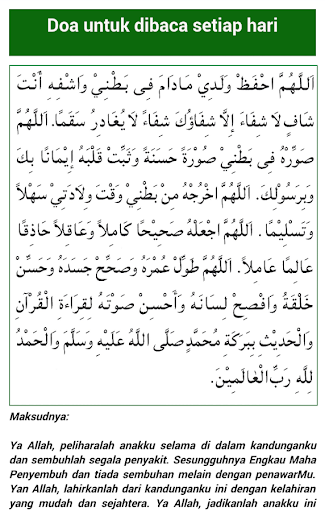 Doa untuk dibaca setiap hari
اَللَّهُمَّ احْفَظْ وَلَدِيْ مَادَامَ فِى بَطْنِيْ وَاشْفِهِ أَنْتَ
شَافٍ لَا شِفَاءَ إِلَّا شِفَاؤُكَ شِفَاءً لَا يُغَادِرُ سَقَمًا. اَللَّهُمَّ
صَوِّرْهُ فِى بَطْنِيْ صُوْرَةً حَسَنَةً وَثَبِّتْ قَلْبَهُ إِيْمَانًا بِكَ
وَبِرَسُوْلِكَ. اَللَّهُمَّ اخْرُجْهُ مِنْ بَطْنِيْ وَقْتَ وِلَادَتِيْ سَهْلًا
وَتَسْلِيْمًا. اَللَّهُمَّ اجْعَلْهُ صَحِيْحًا كَامِلًا وَعَاقِلًا حَاذِقًا
عَالِمًا عَامِلًا. اَللَّهُمَّ طَوِّلْ عُمْرَهُ وَصَحِّحْ جَسَدَهُ وَحَسِّنْ
خَلْقَهُ وَافْصِحْ لِسَانَهُ وَأَحْسِنْ صَوْتَهُ لِقِرَاءَةِ الْقُرْآنِ
وَالْحَدِيْثِ بِبَرَكَةِ مُحَمَّدٍ صَلَّى اللَّهُ عَلَيْهِ وَسَلَّمَ وَالْحَمْدُ
لِلَّهِ رَبِّ الْعَالَمِيْنَ.
Maksudnya:
Ya Allah, peliharalah anakku selama di dalam kandunganku
dan sembuhlah segala penyakit. Sesungguhnya Engkau Maha
Penyembuh dan tiada sembuhan melain dengan penawarMu.
Yan Allah, lahirkanlah dari kandunganku ini dengan kelahiran
yang mudah dan sejahtera. Ya Allah, jadikanlah anakku ini